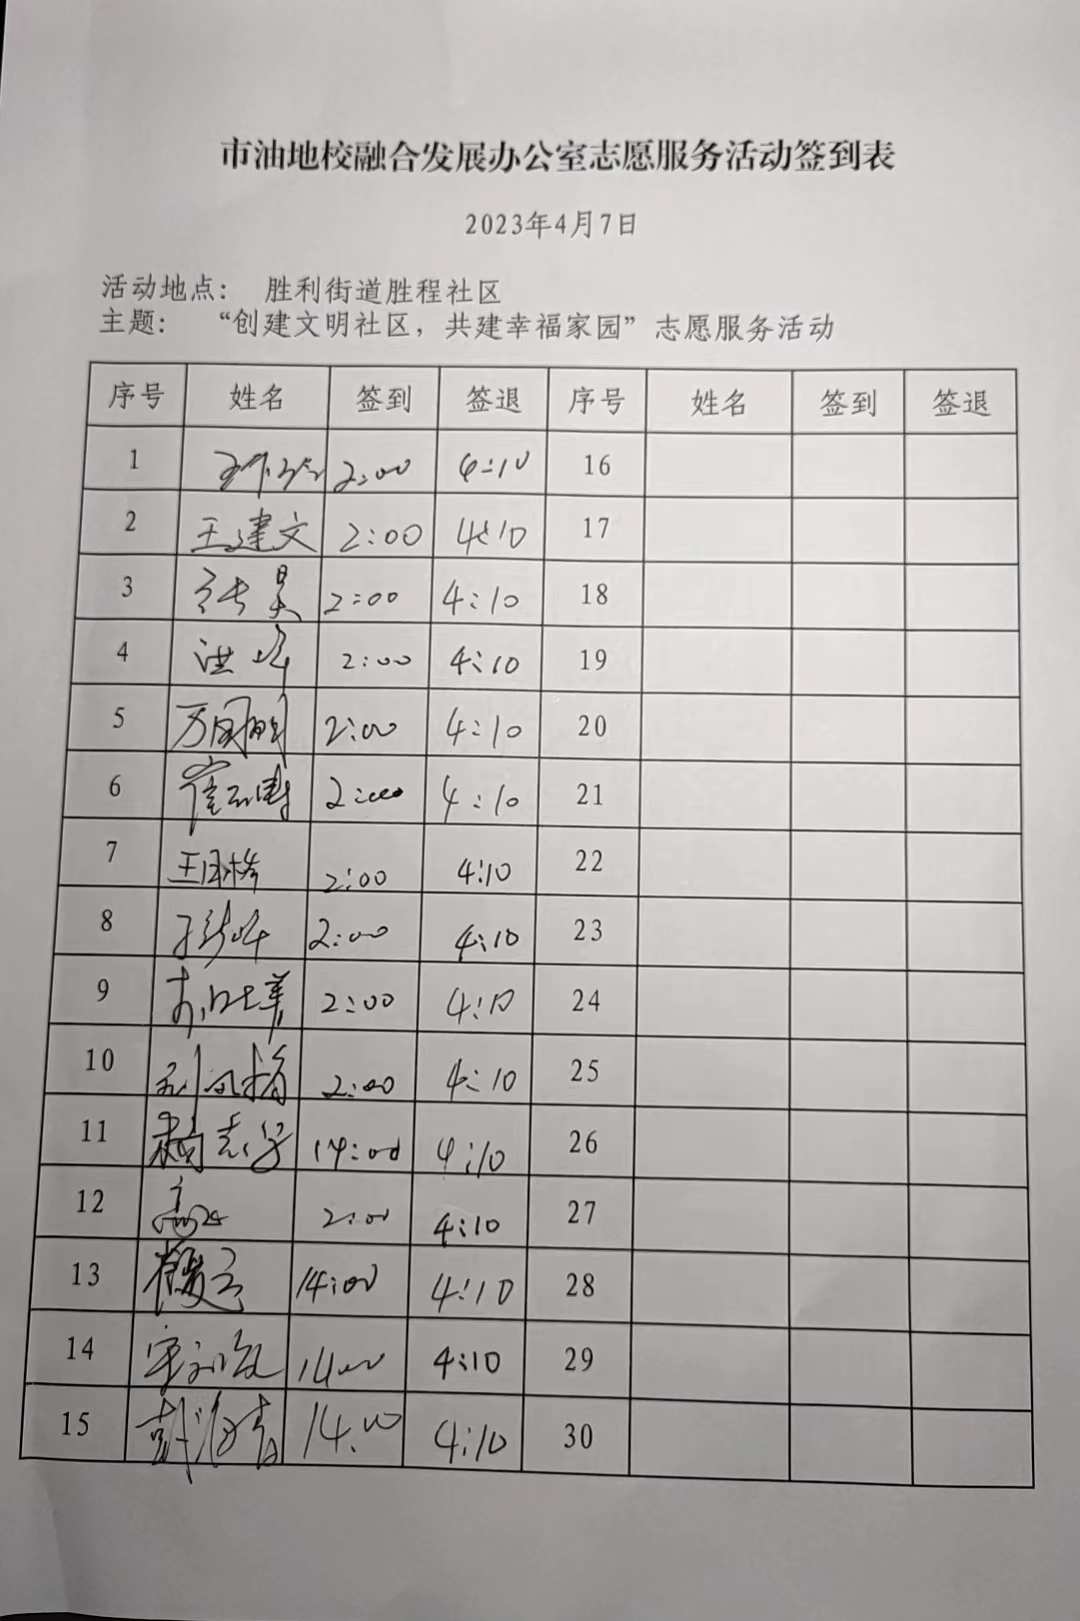 市油地校融合发展办公室志愿服务活动签到表
2023年4月7日
活动地点： 胜利街道胜程社区
主题： “创建文明社区，共建幸福家园”志愿服务活动
序号 姓名 签到 签退 序号 姓名 签到 签退
1 2:00 4:10 16
2 王建文 2:00 4:10 17
3 张昊 2:00 4:10 18
4 洪峰 2:00 4:10 19
5 万国明 2:00 4:10 20
6 2:00 4:10 21
7 2:00 4:10 22
8 2:00 4:10 23
9 2:00 4:10 24
10 2:00 4:10 25
11 14:00 4:10 26
12 2:00 4:10 27
13 14:00 4:10 28
14 14:00 4:10 29
15 14:00 4:10 30